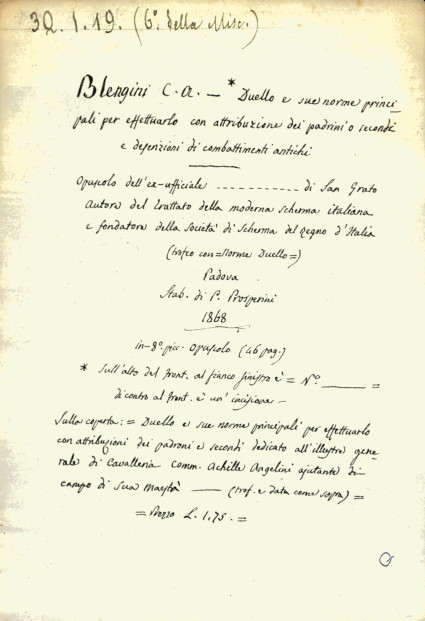 32.1.19. (6º della Misc.)
Blengini C.A. — * Duello e sue norme princi-
pali per effettuarlo con attribuzione dei padrini o secondi
e descrizioni di combattimenti antichi
Opuscolo dell'ex-ufficiale ---------- di San Grato
Autore del Trattato della moderna scherma italiana
e fondatore della Società di Scherma del Regno d'Italia
(trofeo con = Norme Duello =)
Padova
Stab. di P. Prosperini
1868
in-8º picc. opuscolo (46 pag.)
* Sull'alto del front. al fianco sinistro è = Nº ____ =
di contro al front. è un' incisione —
Sulla coperta: = Duello e sue norme principali per effettuarlo
con attribuzioni dei padroni e secondi dedicato all'illustre gene-
rale di Cavalleria comm. Achille Angelini ajutante di
campo di Sua Maestà —— (trof. e data come sopra) =
= Prezzo L. 1,75. =